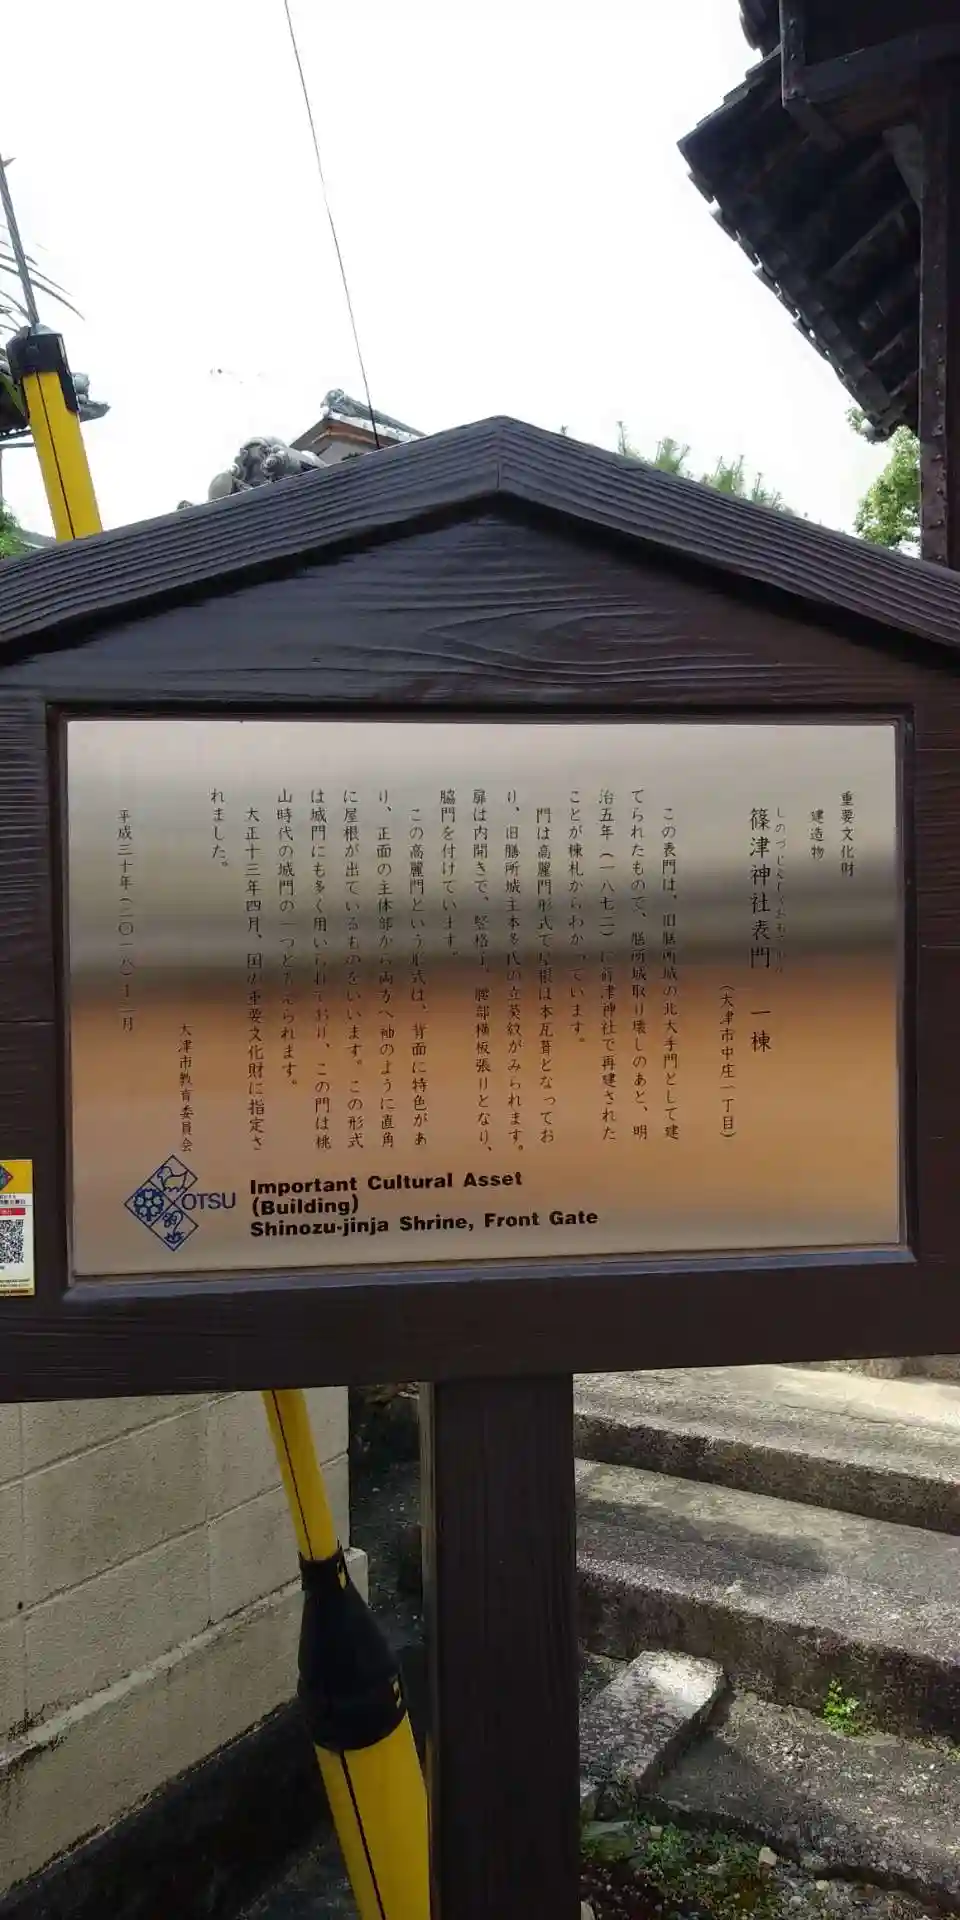 重要文化財
建造物
しのづじんじゃおもてもん
篠津神社表門　一棟
（大津市中庄一丁目）
この表門は、旧膳所城の北大手門として建
てられたもので、膳所城取り壊しのあと、明
治五年（一八七二）に篠津神社で再建された
ことが棟札からわかっています。
門は高麗門形式で屋根は本瓦葺となってお
り、旧膳所城主本多氏の立葵紋がみられます。
扉は内開きで、竪格子、腰部横板張りとなり、
脇門を付けています。
この高麗門という形式は、背面に特色があ
り、正面の主体部から両方へ袖のように直角
に屋根が出ているものをいいます。この形式
は城門にも多く用いられており、この門は桃
山時代の城門の一つと考えられます。
大正十三年四月、国の重要文化財に指定さ
れました。
大津市教育委員会
平成三十年（二〇一八）十二月
OTSU
Important Cultural Asset
(Building)
Shinozu-jinja Shrine, Front Gate